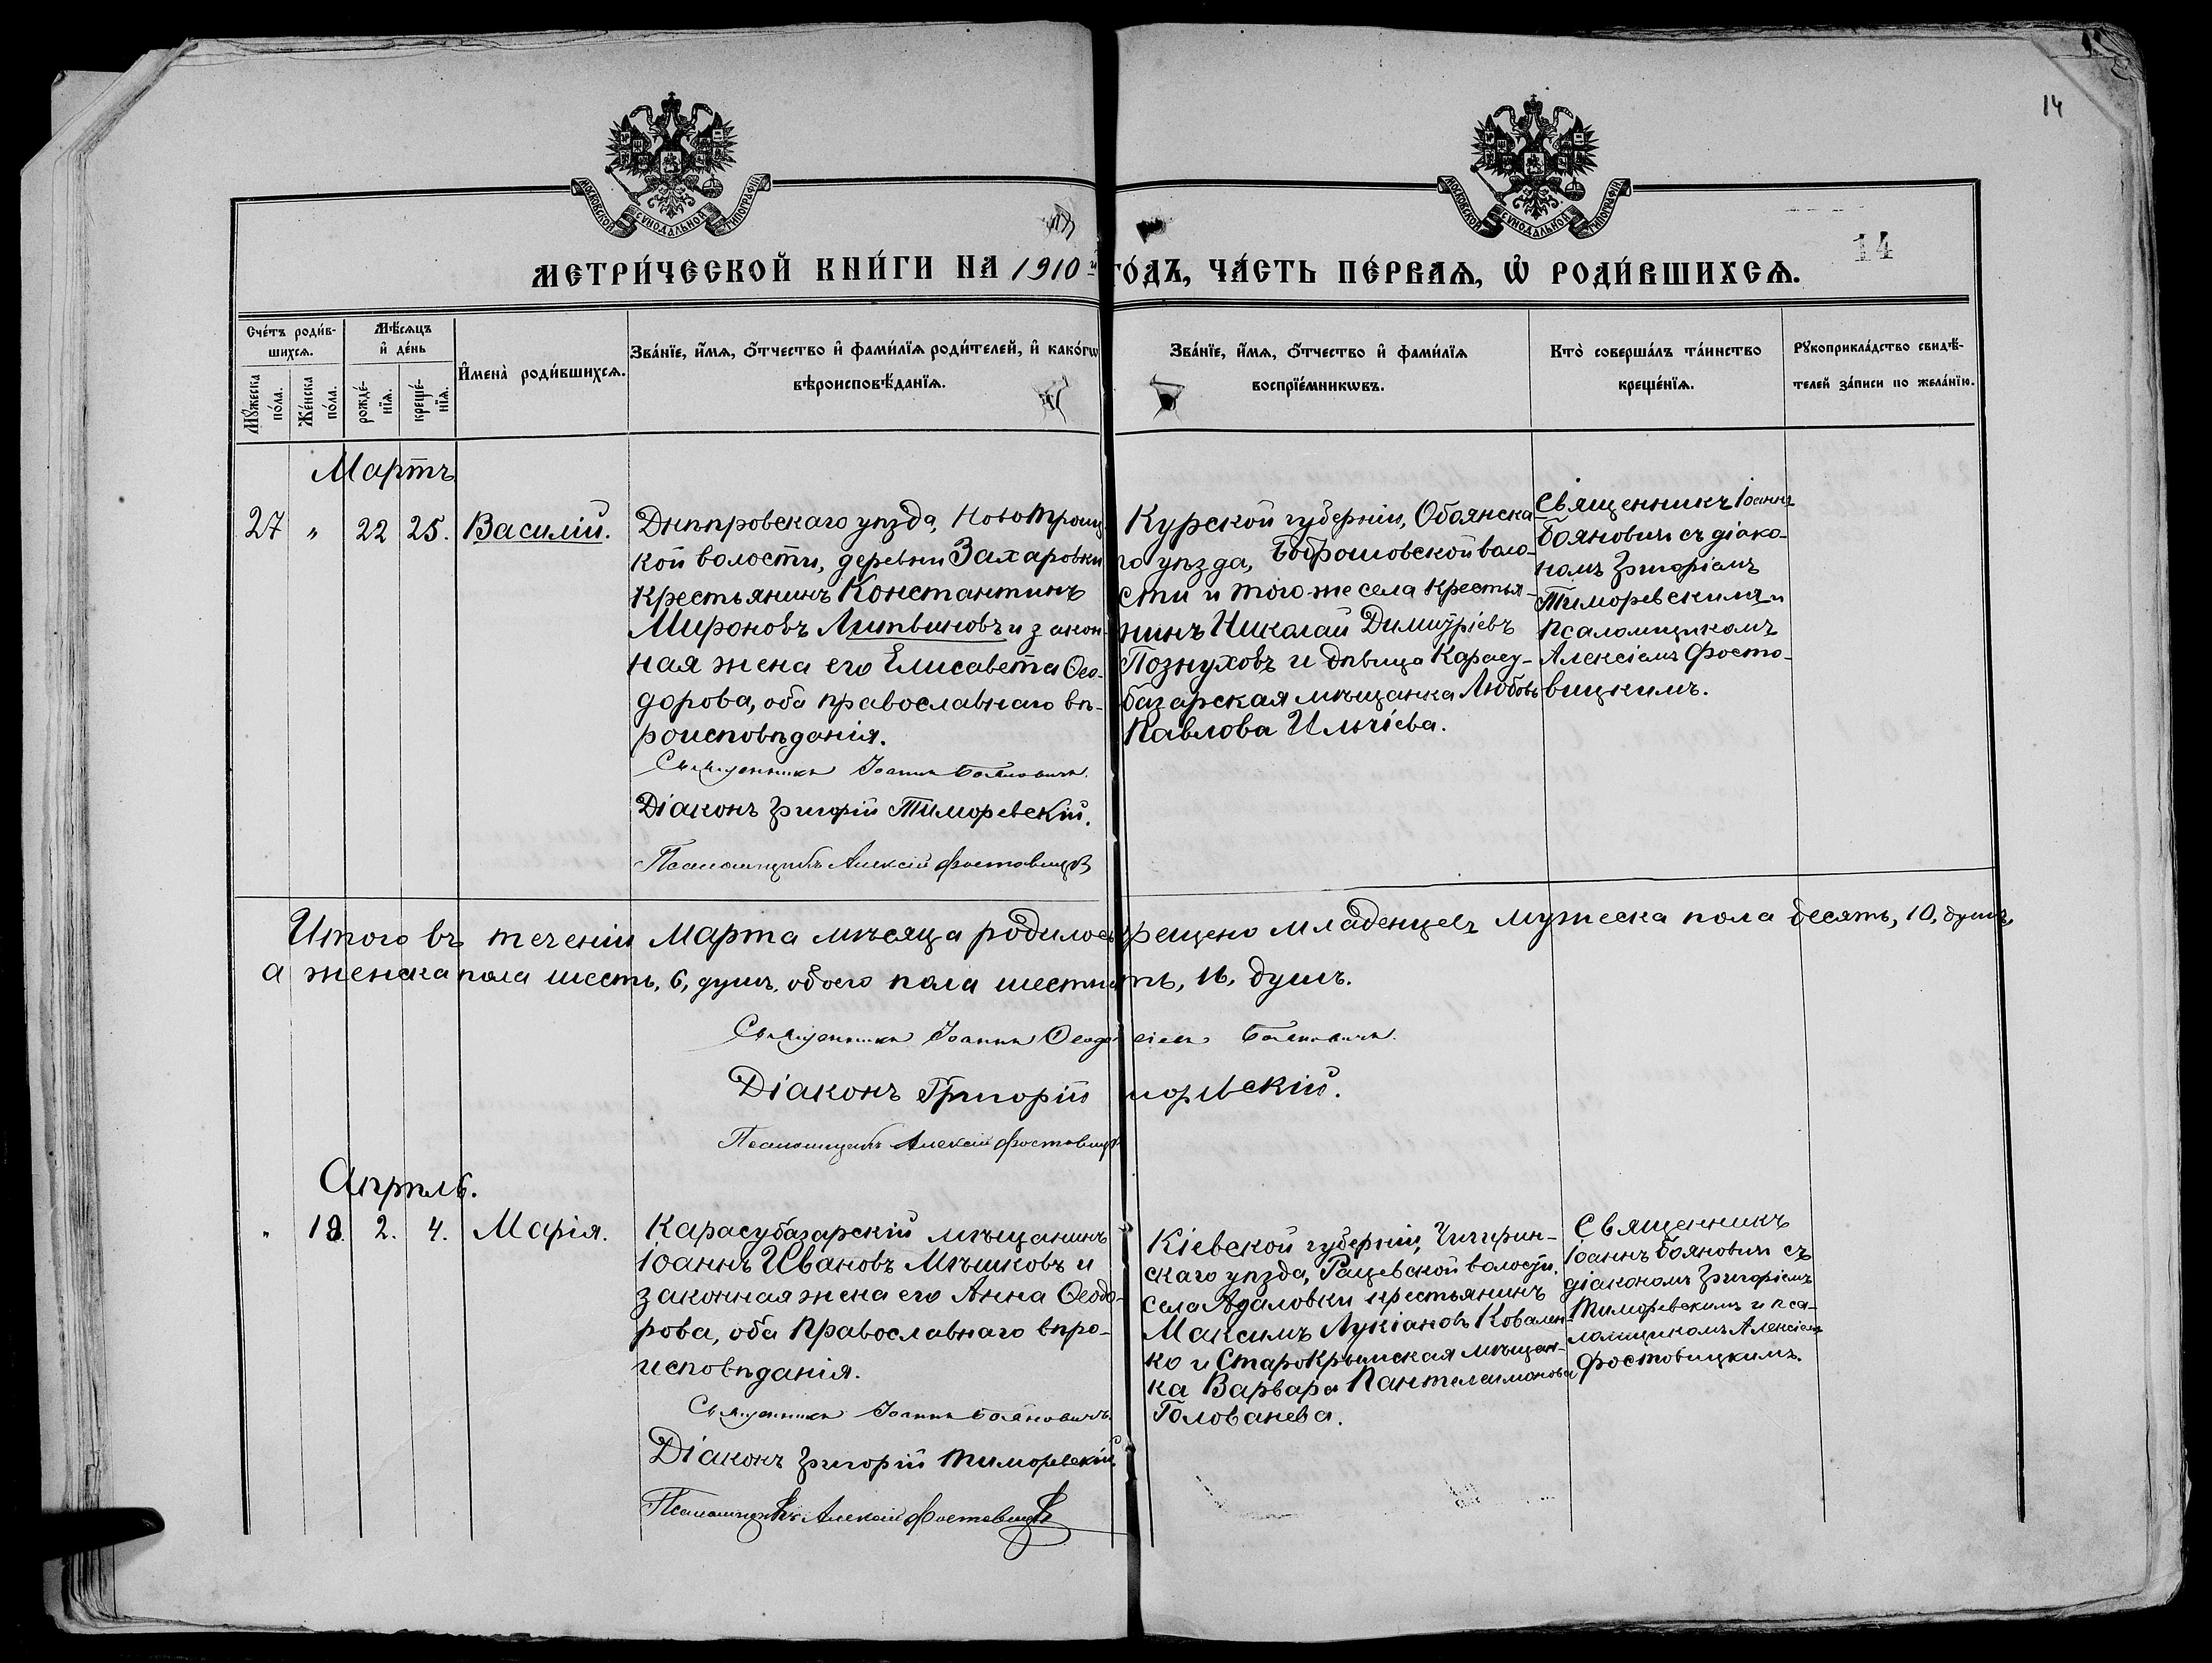 14
МОСКОВСКОЙ СѴНОДАЛЬНОЙ ТИПОГРАФІИ
МОСКОВСКОЙ СѴНОДАЛЬНОЙ ТИПОГРАФІИ
14
МЕТРИ́ЧЕСКОЙ КНИ́ГИ НА 1910й ГО́ДЪ, ЧА́СТЬ ПЕ́РВАѦ, Ѡ҆ РОДИ́ВШИХСѦ.
Сче́тъ роди́в-
шихсѧ.
Мꙋ́жеска по́ла.
Же́нска по́ла.
Мѣ́сѧцъ
и҆ де́нь
рожде́-
нїѧ.
креще́-
нїѧ.
И҆мена̀ роди́вшихсѧ.
Зва́нїе, и҆́мѧ, ѻ҆́тчество и҆ фами́лїѧ роди́телей, и҆ како́гѡ
вѣроисповѣ́данїѧ.
Зва́нїе, и҆́мѧ, ѻ҆́тчество и҆ фами́лїѧ
воспрїе́мникѡвъ.
Кто̀ соверша́лъ та́инство
креще́нїѧ.
Рꙋкоприкла́дство свидѣ́-
телей за́писи по жела́нїю.
Мартъ
27 " 22 25. Василій.
Днѣпровскаго уѣзда, Ново Троиц
кой волости, деревни Захаровки
крестьянинъ Константинъ
Мироновъ Литвиновъ и закон-
ная жена его Елисавета Ѳео-
дорова, оба православнаго вѣ-
роисповѣданія.
Священникъ Іоаннъ Бояновичъ.
Діаконъ Григорій Тиморевскій.
Псаломщикъ Алексій Фостовицкій
Курской губерніи, Обоянска
го уѣзда, Бобрышовской воло-
сти и того-же села крестья-
нинъ Николай Димитріевъ
Познуховъ и дѣвица Карасу-
базарская мѣщанка Любовь
Павлова Ильчіева.
Священникъ Іоаннъ
Бояновичъ съ діако-
номъ Григоріемъ
Тиморевскимъ и
псаломщикомъ
Алексіемъ Фосто-
вицкимъ.
Итого въ теченіи Марта мѣсяца родилось крещено младенцевъ мужеска пола десять, 10, душъ,
а женска пола шесть, 6, душъ, обоего пола шестнать, 16, душъ.
Священникъ Іоаннъ Бояновичъ.
Діаконъ Григорій моревскій.
Псаломщикъ Алексій Фостовицкій
Апрѣль.
" 18. 2. 4. Марія.
Карасубазарскій мѣщанинъ
Іоаннъ Ивановъ Мѣшковъ и
законная жена его Анна Ѳеодо-
рова, оба Православнаго вѣро-
исповѣданія.
Священникъ Іоаннъ Бояновичъ.
Діаконъ Григорій Тиморевскій.
Псаломщикъ Алексій Фостовицкій
Кіевской губерніи, Чигирин-
скаго уѣзда, Рацевской волости,
села Адамовки крестьянинъ
Максимъ Лукіановъ Ковален-
ко и Старокрымская мѣщан-
ка Варвара Пантелеимонова
Голованева.
Священникъ
Іоаннъ Бояновичъ съ
діакономъ Григоріемъ
Тиморевскимъ и пса-
ломщикомъ Алексіемъ
Фостовицкимъ.